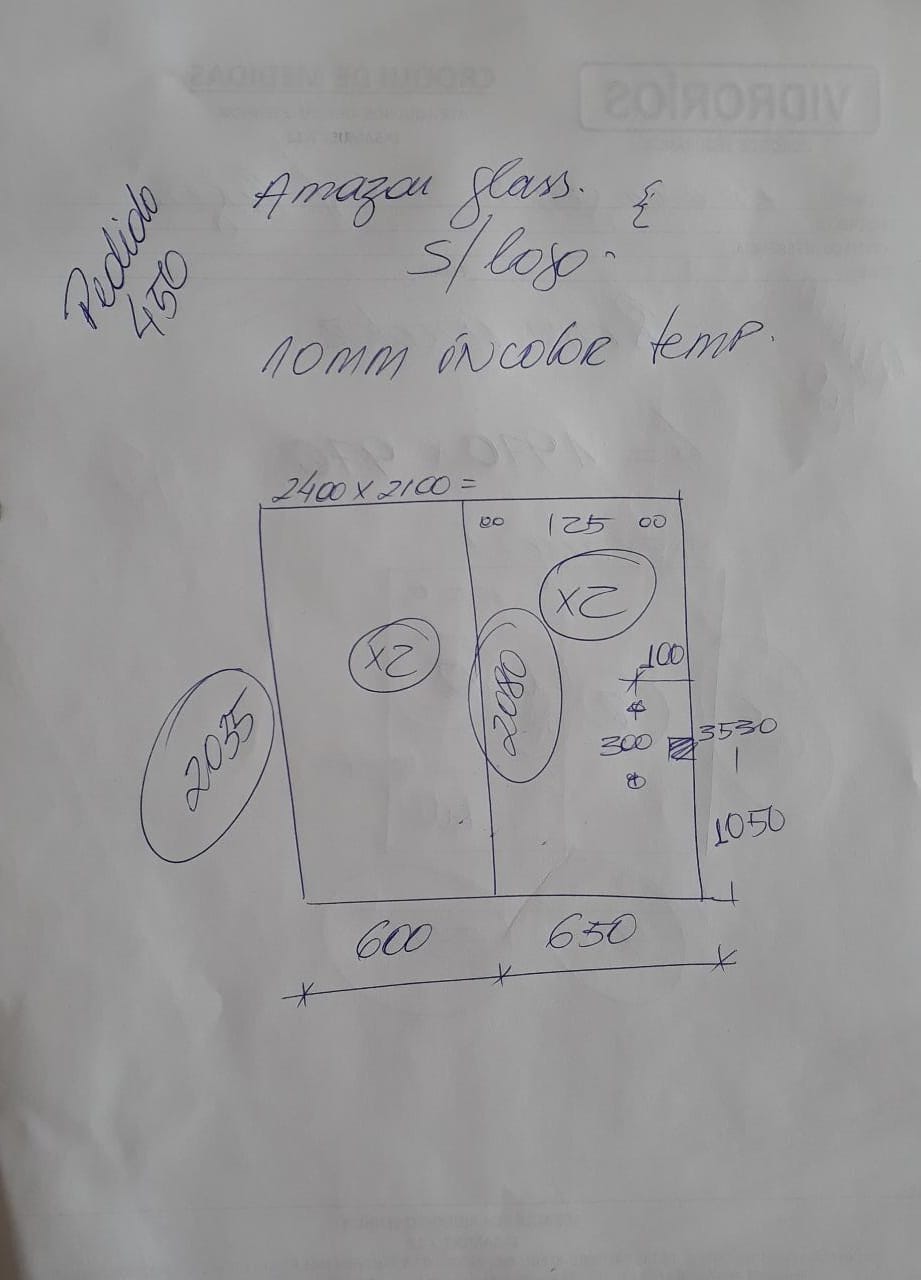 Pedido
450
Amazon glass.
S/logo.
10mm incolor temp.
2400 x 2100 =
125
2x
2x
100
2080
2035
300
3530
1050
600
650